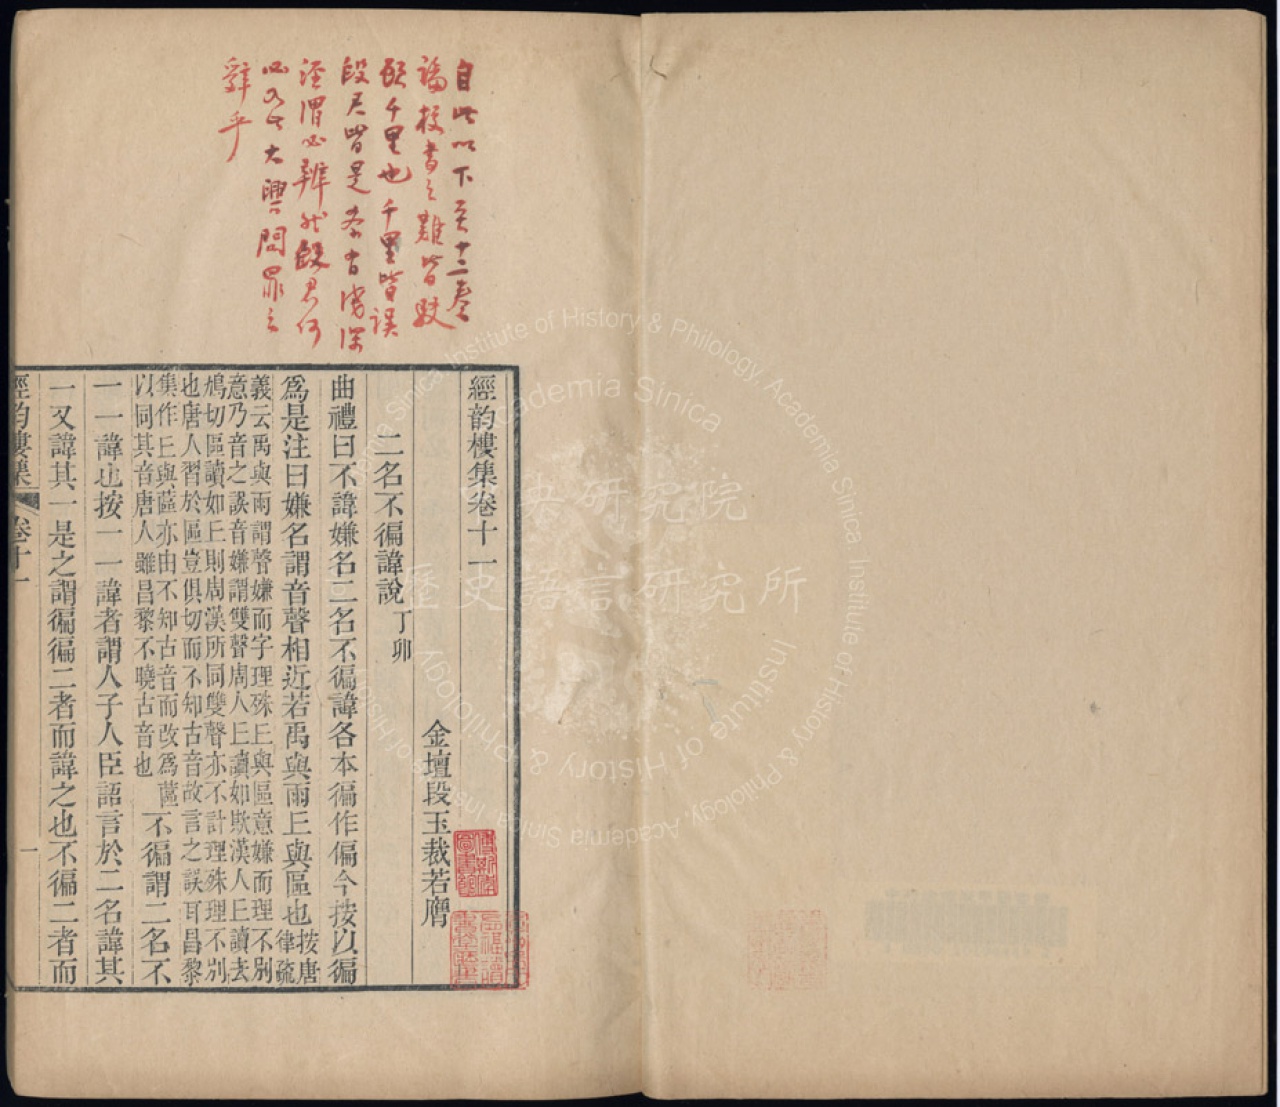 自此以下至十二卷
論校書之難皆駁
顧千里也千里皆誤
段君皆是考古淺深
涇渭必辨然段君何
必為此大興問罪之
辭乎
經韵樓集卷十一
金壇段玉裁若膺
二名不徧諱說 丁卯
曲禮曰不諱嫌名二名不徧諱各本徧作偏今按以徧
爲是注曰嫌名謂音聲相近若禹與雨𠀉與區也按唐律疏
義云禹與雨謂聲嫌而字理殊𠀉與區意嫌而理不別
意乃音之誤音嫌謂雙聲周人𠀉讀如欺漢人𠀉讀去
鳩切區讀如𠀉則周漢所同雙聲亦不計理殊理不別
也唐人習於區豈俱切而不知古音故言之誤耳昌黎
集作𠀉與蓲亦由不知古音而改爲蓲
以同其音唐人雖昌黎不曉古音也 不徧謂二名不
一一諱也按一一諱者謂人子人臣語言於二名諱其
一又諱其一是之謂徧徧二者而諱之也不徧二者而
經韵樓集 卷十一
一
傅斯年圖書館
中央研究院
歷史語言研究所
Institute of History & Philology, Academia Sinica